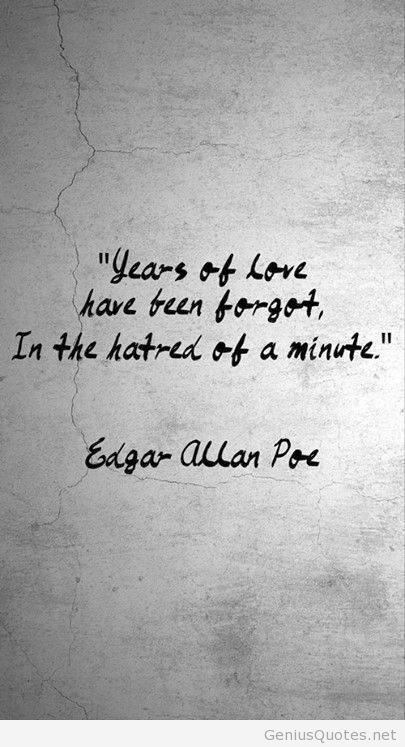 "Years of love
have been forgot,
In the hatred of a minute."
Edgar Allan Poe
GeniusQuotes.net